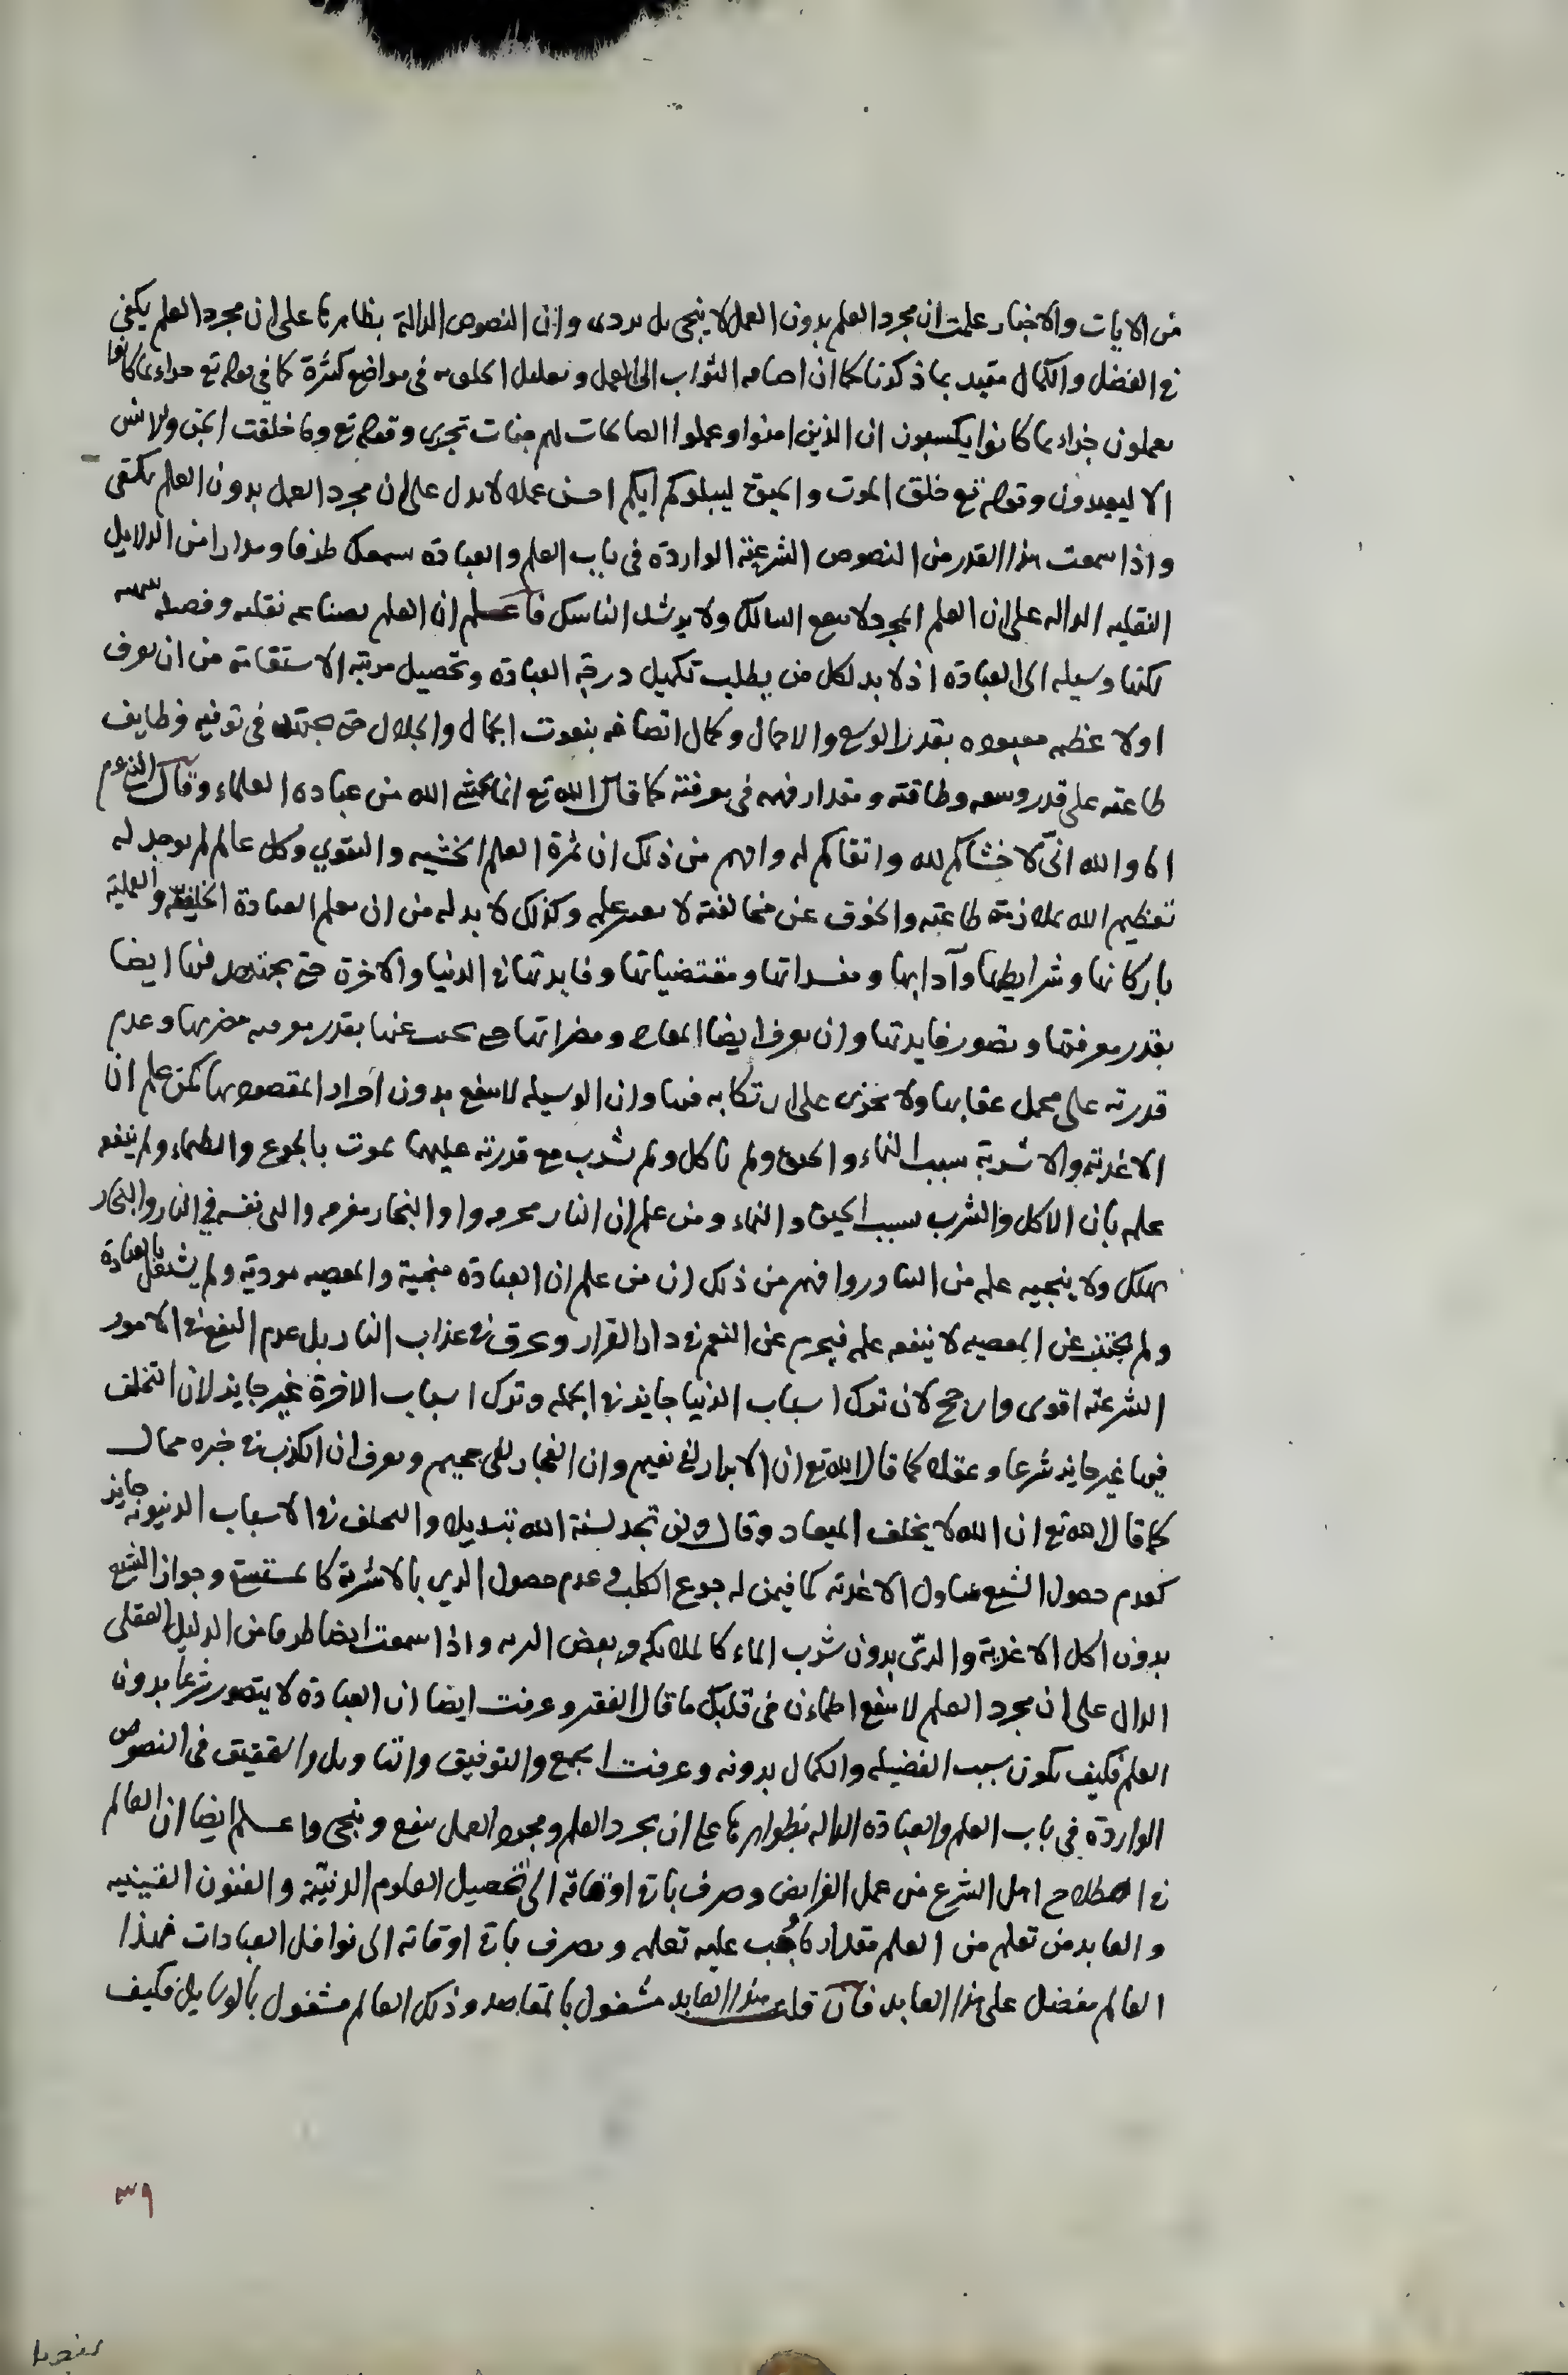 من الايات والاخبار علمت ان مجرد العلم بدون العمل لا ينجى بل يردى وان النصوص الدالة بظاهرها على ان مجرد العلم يكفى
فى الفضل والكمال مقيد بما ذكرنا كما ان اضافه الثواب الى العمل وتعليل الخلق به فى مواضع كثيرة كما فى قوله تع جزاء بما كانوا
يعملون جزاء بما كانوا يكسبون ان الذين امنوا وعملوا الصالحات لهم جنات تجرى وقوله تع وما خلقت الجن والانس
الا ليعبدون وقوله تع خلق الموت والحيوة ليبلوكم ايكم احسن عملا لا يدل على ان مجرد العمل بدون العلم يكفى
واذا سمعت هذا القدر من النصوص الشرعية الواردة فى باب العلم والعبادة سمعك طرفا ومدارا من الدلايل
النقليه الداله على ان العلم المجرد لا ينفع السالك ولا يرشد الناسك فاعلم ان العلم بصناعه نقليه وفصيله
لكنها وسيله الى العبادة اذ لا بد لكل من يطلب تكميل درجة العبادة وتحصيل مرتبة الاستقامة من ان يعرف
اولا عظمه معبوده بقدر الوسع والاحمال وكمال اتصافه بنعوت الجمال والجلال حتى يجتهد فى توفيه وظايف
طاعته على قدر وسعه وطاقته ومقدار فهمه فى معرفته كما قال الله تع انما يخشى الله من عباده العلماء وقال النبى عم
اما والله انى لاخشاكم لله واتقاكم له وافهم من ذلك ان ثمرة العلم الخشيه والتقوي وكل عالم لم يوجد له
تعظيم الله بملازمة طاعته والخوف عن مخالفته لا يعتبر علمه وكذلك لا بد له من ان يعلم العبادة الخلقية والعملية
باركانها وشرايطها وآدابها ومفسداتها ومقتضياتها وفايدتها فى الدنيا والاخرة حتى يجتهد فيها ايضا
بقدر معرفتها وتصور فايدتها وان يعرف ايضا المعاصى ومضراتها حتى يجتنب عنها بقدر معرفه مضرتها وعدم
قدرته على محمل عقابها ولا يجزى على ارتكابه فيها وان الوسيله لا ينفع بدون افراد المقصود بها كمن علم ان
الاغذية والاشربة سبب النماء والحيوة ولم ياكل ولم يشرب مع قدرته عليهما يموت بالجوع والظماء ولم ينفعه
علمه بان الاكل والشرب سبب الحيوة والنماء ومن علم ان النار محرقه والبحار مغرقه والقى نفسه فى النار والبحار
يهلك ولا ينجيه علمه من البوار وافهم من ذلك ان من علم ان العبادة منجية والمعصيه مرديه ولم يشتغل بالعبادة
ولم يجتنب عن المعصيه لا ينفعه علمه فيحرم عن النعم فى دار القرار ويحرق فى عذاب النار بل عدم النفع فى الامور
الشرعية اقوى وارجح لان ترك اسباب الدنيا جايز فى الجمله وترك اسباب الاخرة غير جايز لان التخلف
فيها غير جايز شرعا وعقلا كما قال الله تع ان الابرار لفى نعيم وان الفجار لفى جحيم ويعرف ان الكذب فى خبره محال
كما قال الله تع ان الله لا يخلف الميعاد وقال ولن تجد لسنة الله تبديلا والتخلف فى الاسباب الدنيويه جايز
كعدم حصول الشبع بتناول الاغذية كما فيمن له جوع الكلب وعدم حصول الري بالاشربة كالمستسقى وجواز الشبع
بدون اكل الاغذية والرى بدون شرب الماء كالملائكة وبعض البريه واذا سمعت ايضا طرفا من الدليل العقلى
الدال على ان مجرد العلم لا ينفع اطمأن فى قلبك ما قال الفقير وعرفت ايضا ان العبادة لا يتصور شرعا بدون
العلم فكيف يكون سبب الفضيله والكمال بدونه وعرفت الجمع والتوفيق والتاويل والتحقيق فى النصوص
الواردة فى باب العلم والعبادة الداله بظواهرها على ان مجرد العلم ومجرد العمل ينفع وينجى واعلم ايضا ان العالم
فى اصطلاح اهل الشرع من عمل الفرايض وصرف باقى اوقاته الى تحصيل العلوم الدينية والفنون اليقينيه
والعابد من تعلم من العلم مقدار ما يجب عليه تعلمه ويصرف باقى اوقاته الى نوافل العبادات فهذا
العالم مفضل على هذا العابد فان قلت هذا العابد مشغول بالمقاصد وذلك العالم مشغول بالوسايل فكيف
٣٩